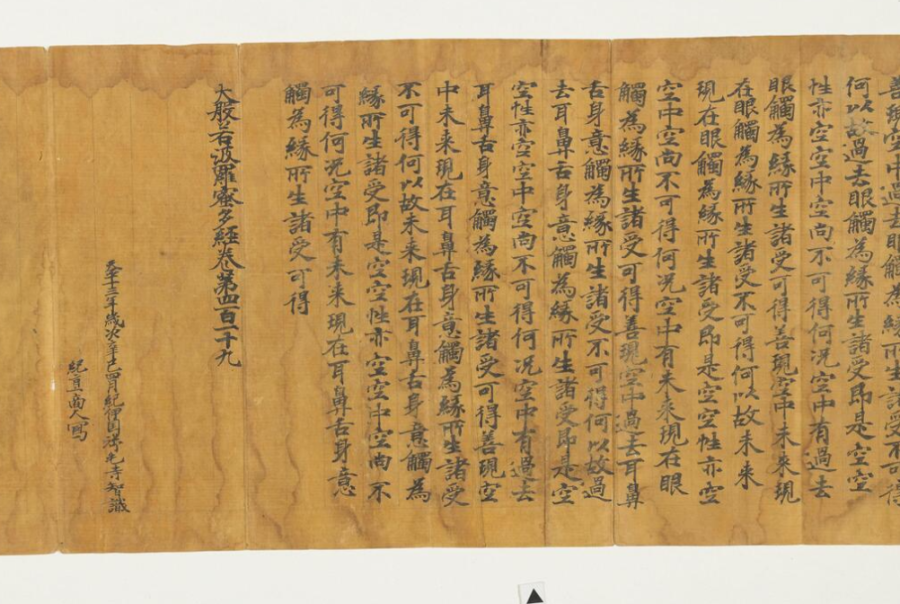 善現空中過去眼觸為緣所生諸受不可得
何以故過去眼觸為緣所生諸受即是空空
性亦空空中空尚不可得何况空中有過去
眼觸為緣所生諸受可得善現空中未来現
在眼觸為緣所生諸受不可得何以故未来
現在眼觸為緣所生諸受即是空空性亦空
空中空尚不可得何况空中有未来現在眼
觸為緣所生諸受可得善現空中過去耳鼻
舌身意觸為緣所生諸受不可得何以故過
去耳鼻舌身意觸為緣所生諸受即是空
空性亦空空中空尚不可得何况空中有過去
耳鼻舌身意觸為緣所生諸受可得善現空
中未来現在耳鼻舌身意觸為緣所生諸受
不可得何以故未来現在耳鼻舌身意觸為
緣所生諸受即是空空性亦空空中空尚不
可得何况空中有未来現在耳鼻舌身意
觸為緣所生諸受可得
大般若波羅蜜多経卷第四百一十九
天平十三年歲次辛巳四月紀伊国御毛寺智識
紀直商人寫